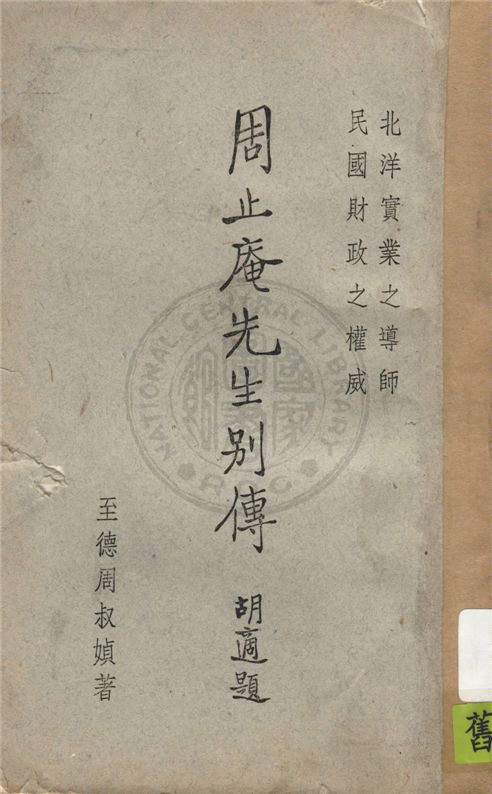 北洋實業之導師
民國財政之權威
周止庵先生别傳
胡適題
至德周叔媜著
NATIONAL CENTRAL LIBRARY
舊